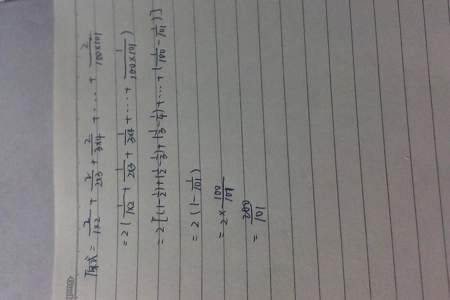 原式 = 2/1×2 + 2/2×3 + 2/3×4 + ⋯ + 2/100×101
= 2 ( 1/1×2 + 1/2×3 + 1/3×4 + ⋯ + 1/100×101 )
= 2 [ (1-1/2) + (1/2-1/3) + (1/3-1/4) + ⋯ + (1/100 - 1/101) ]
= 2 ( 1 - 1/101 )
= 2 × 100/101
= 200/101